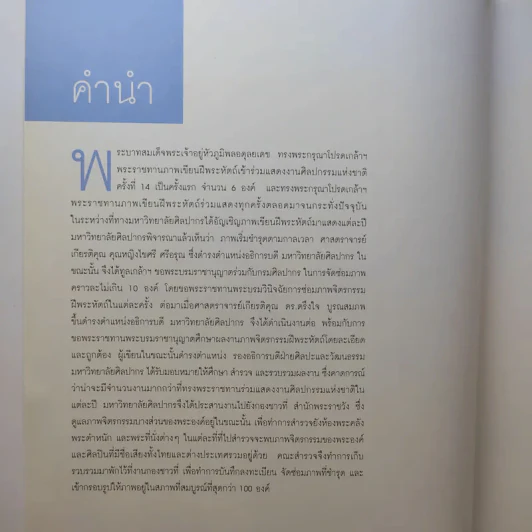 คำนำ
พระบาทสมเด็จพระเจ้าอยู่หัวภูมิพลอดุลยเดช ทรงพระกรุณาโปรดเกล้าฯ
พระราชทานภาพเขียนฝีพระหัตถ์เข้าร่วมแสดงงานศิลปกรรมแห่งชาติ
ครั้งที่ 14 เป็นครั้งแรก จำนวน 6 องค์ และทรงพระกรุณาโปรดเกล้าฯ
พระราชทานภาพเขียนฝีพระหัตถ์ร่วมแสดงทุกครั้งตลอดมาจนกระทั่งปัจจุบัน
ในระหว่างที่ทางมหาวิทยาลัยศิลปากรได้อัญเชิญภาพเขียนฝีพระหัตถ์มาแสดงแต่ละปี
มหาวิทยาลัยศิลปากรพิจารณาแล้วเห็นว่า ภาพเริ่มชำรุดตามกาลเวลา ศาสตราจารย์
เกียรติคุณ คุณหญิงไขศรี ศรีอรุณ ซึ่งดำรงตำแหน่งอธิการบดี มหาวิทยาลัยศิลปากร ใน
ขณะนั้น จึงได้ทูลเกล้าฯ ขอพระบรมราชานุญาตร่วมกับกรมศิลปากร ในการจัดซ่อมภาพ
คราวละไม่เกิน 10 องค์ โดยขอพระราชทานพระบรมวินิจฉัยการซ่อมภาพจิตรกรรม
ฝีพระหัตถ์ในแต่ละครั้ง ต่อมาเมื่อศาสตราจารย์เกียรติคุณ ดร.ตรึงใจ บูรณสมภพ
ขึ้นดำรงตำแหน่งอธิการบดี มหาวิทยาลัยศิลปากร จึงได้ดำเนินงานต่อ พร้อมกับการ
ขอพระราชทานพระบรมราชานุญาตศึกษาผลงานภาพจิตรกรรมฝีพระหัตถ์โดยละเอียด
และถูกต้อง ผู้เขียนในขณะนั้นดำรงตำแหน่ง รองอธิการบดีฝ่ายศิลปะและวัฒนธรรม
มหาวิทยาลัยศิลปากร ได้รับมอบหมายให้ศึกษา สำรวจ และรวบรวมผลงาน ซึ่งคาดการณ์
ว่าน่าจะมีจำนวนงานมากกว่าที่ทรงพระราชทานร่วมแสดงงานศิลปกรรมแห่งชาติใน
แต่ละปี มหาวิทยาลัยศิลปากรจึงได้ประสานงานไปยังกองชาวที่ สำนักพระราชวัง ซึ่ง
ดูแลภาพจิตรกรรมบางส่วนของพระองค์อยู่ในขณะนั้น เพื่อทำการสำรวจยังห้องพระคลัง
พระตำหนัก และพระที่นั่งต่างๆ ในแต่ละที่ที่ไปสำรวจจะพบภาพจิตรกรรมของพระองค์
และศิลปินที่มีชื่อเสียงทั้งไทยและต่างประเทศรวมอยู่ด้วย คณะสำรวจจึงทำการเก็บ
รวบรวมมาพักไว้ที่งานกองชาวที่ เพื่อทำการบันทึกลงทะเบียน จัดซ่อมภาพที่ชำรุด และ
เข้ากรอบรูปให้ภาพอยู่ในสภาพที่สมบูรณ์ที่สุดกว่า 100 องค์